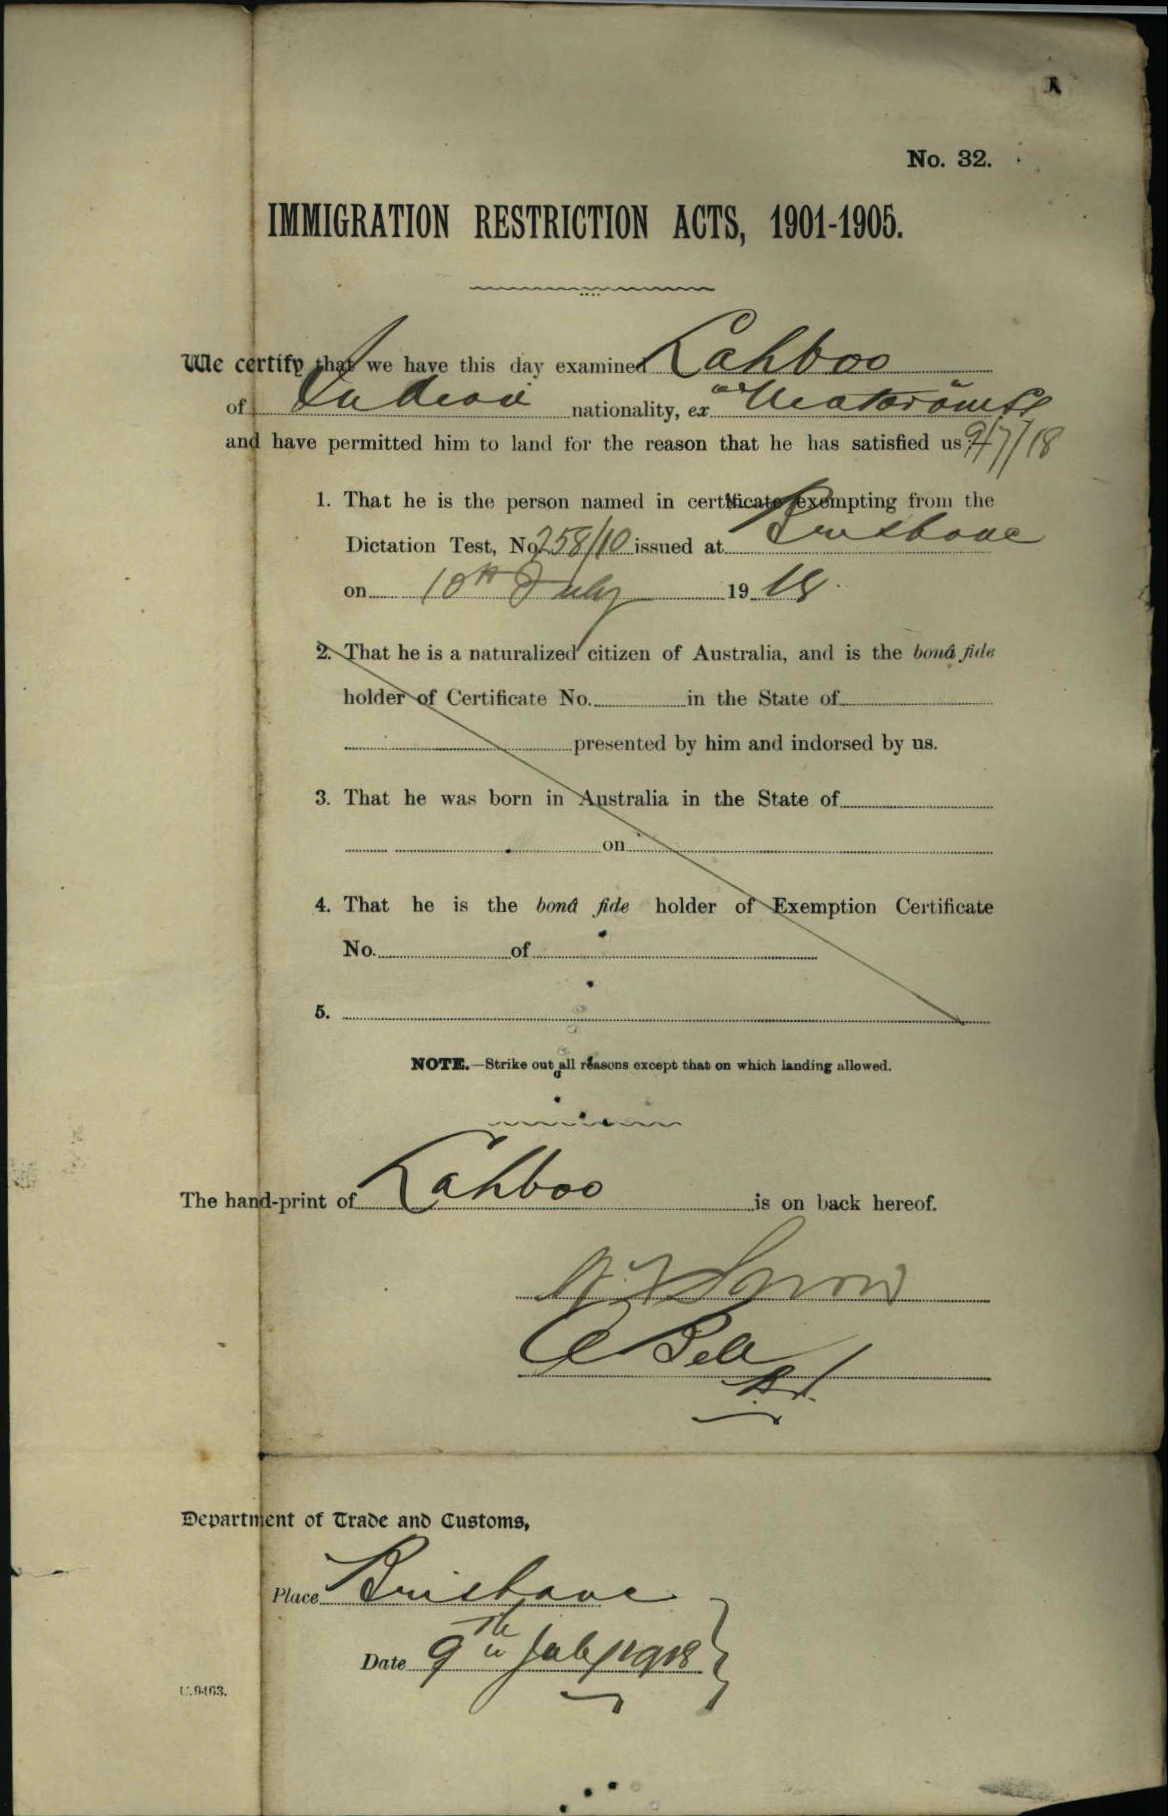 No. 32.
IMMIGRATION RESTRICTION ACTS, 1901-1905.
We certify that we have this day examined Lahboo
of Indian nationality, ex
and have permitted him to land for the reason that he has satisfied us:— 9/7/18
1. That he is the person named in certificate exempting from the
Dictation Test, No. 258/10 issued at Brisbane
on 10th July 19 18
2. That he is a naturalized citizen of Australia, and is the bonâ fide
holder of Certificate No. in the State of
presented by him and indorsed by us.
3. That he was born in Australia in the State of
on
4. That he is the bonâ fide holder of Exemption Certificate
No. of
5.
NOTE.—Strike out all reasons except that on which landing allowed.
The hand-print of Lahboo is on back hereof.
Bell
Department of Trade and Customs,
Place Brisbane
Date 9th July 1918
C.9463.